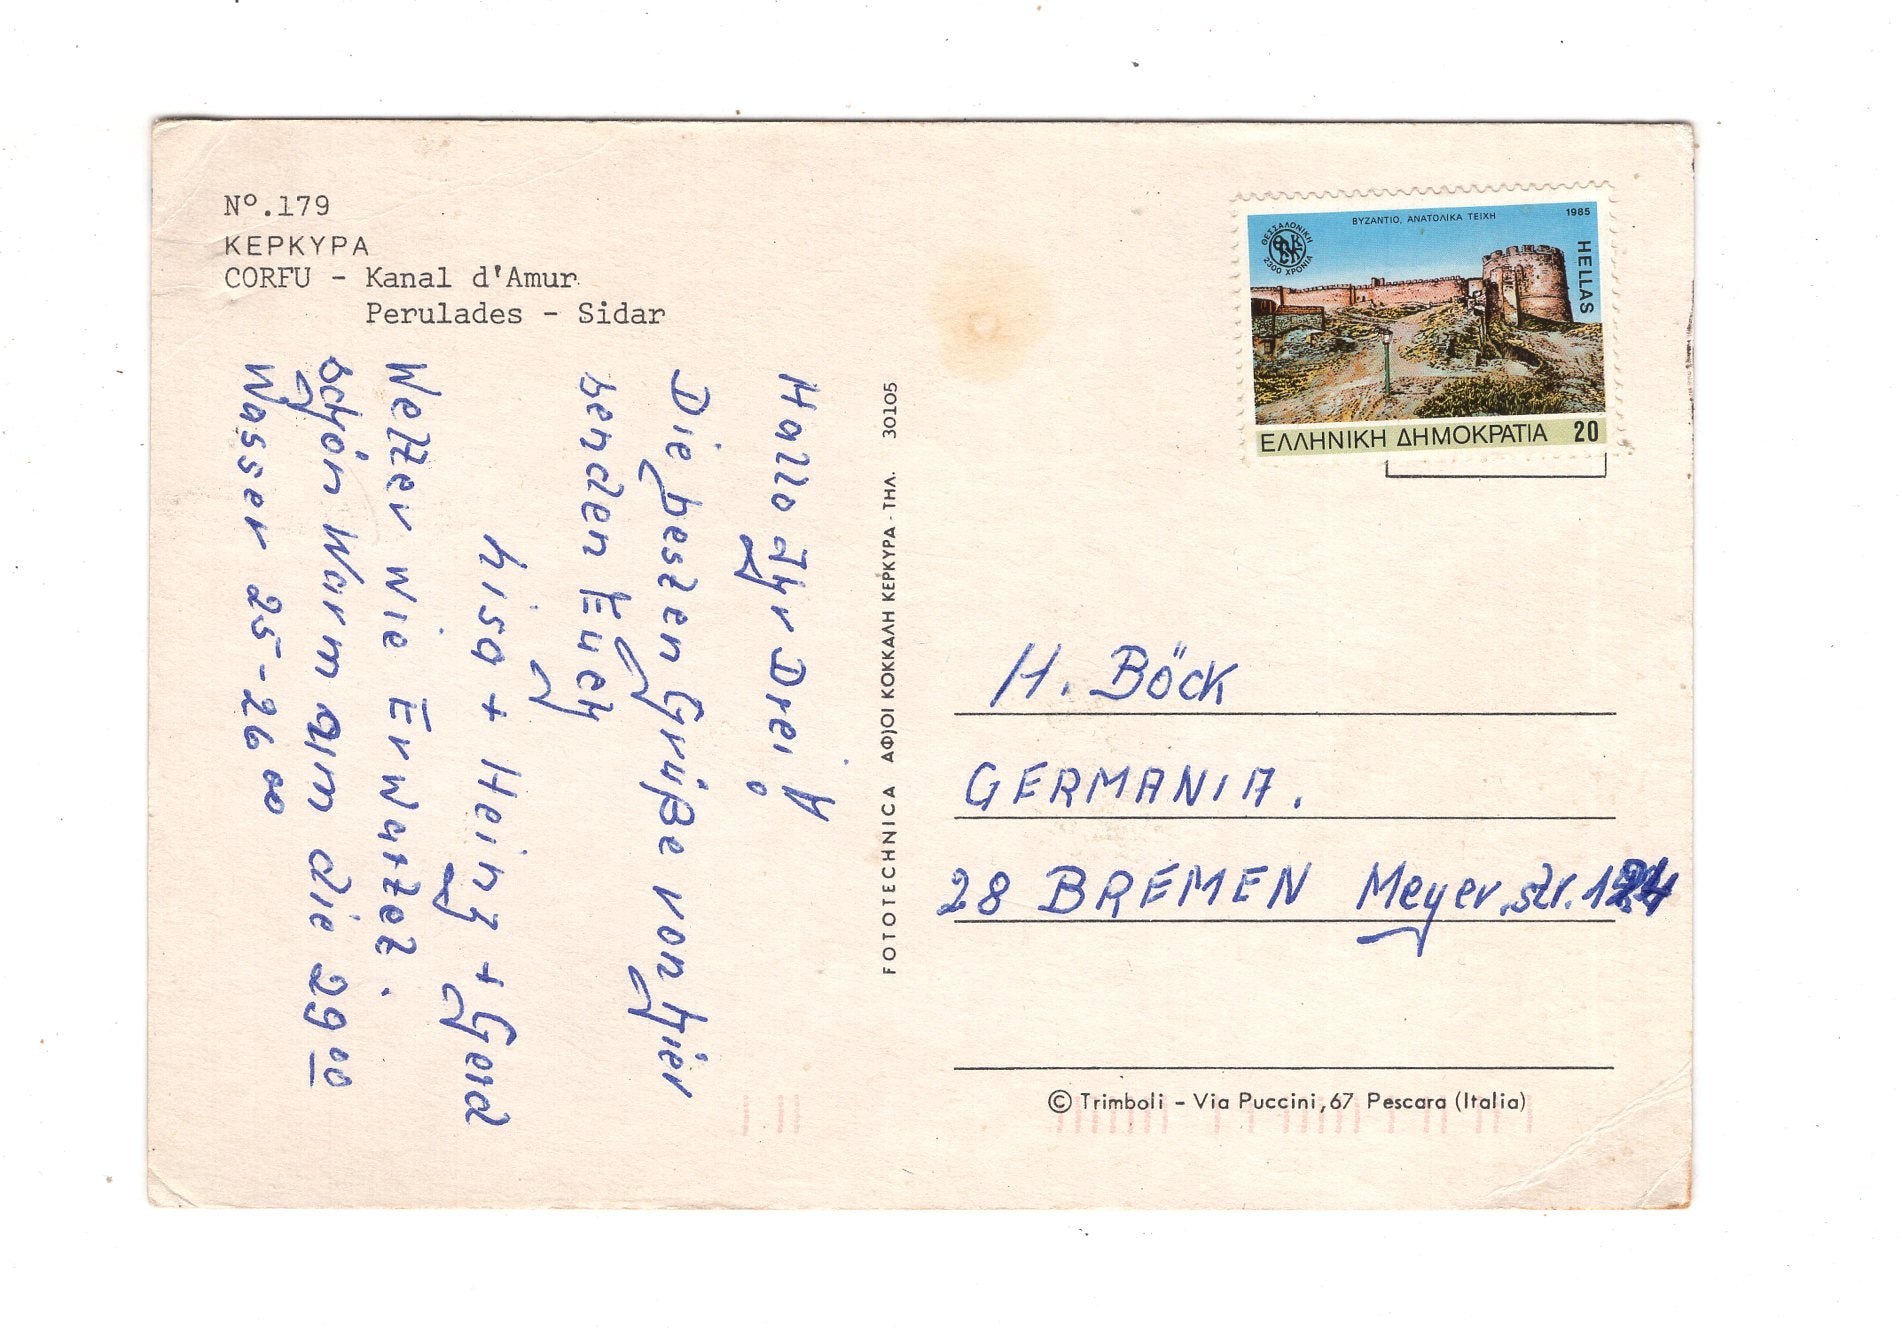 Nº.179
ΚΕΡΚΥΡΑ
CORFU - Kanal d'Amur
Perulades - Sidar
Hallo Ihr Drei!
Die besten Grüße von hier
senden Euch
Lisa + Heinz + Gerd
Wetter wie Erwartet.
schön Warm um die 29⁰⁰
Wasser 25-26⁰⁰
FOTOTECHNICA ΑΦΟΙ ΚΟΚΚΑΛΗ ΚΕΡΚΥΡΑ - ΤΗΛ. 30105
ΒΥΖΑΝΤΙΟ, ΑΝΑΤΟΛΙΚΑ ΤΕΙΧΗ 1985
ΘΕΣΣΑΛΟΝΙΚΗ
2300 ΧΡΟΝΙΑ
HELLAS
ΕΛΛΗΝΙΚΗ ΔΗΜΟΚΡΑΤΙΑ 20
H. Böck
GERMANIA.
28 BREMEN Meyer.str.
© Trimboli - Via Puccini, 67 Pescara (Italia)